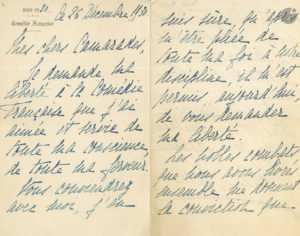 1680-1930
Comédie Française
Ce 26 Décembre 1930
Mes chers Camarades,
Je demande ma
liberté à la Comédie
Française que j'ai
aimée et servie de
toute ma conscience
de toute ma ferveur.
Vous conviendrez
avec moi, j'en
suis sûre, qu'après
m'être pliée de
toute ma foi à notre
discipline, il m'est
permis, aujourd'hui
de vous demander
ma liberté.
Les nobles combats
que nous avons
ensemble me donnent
la conviction que